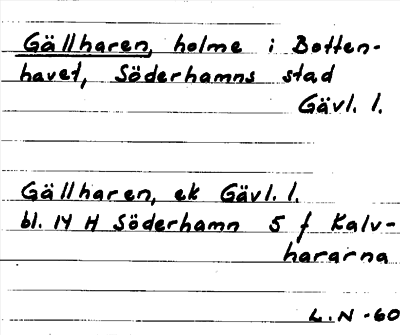 Gällharen, holme i Botten-
havet, Söderhamns stad
Gävl. l.
Gällharen, ek Gävl. l.
bl. 14 H Söderhamn 5 f Kalv-
hararna
L. N -60